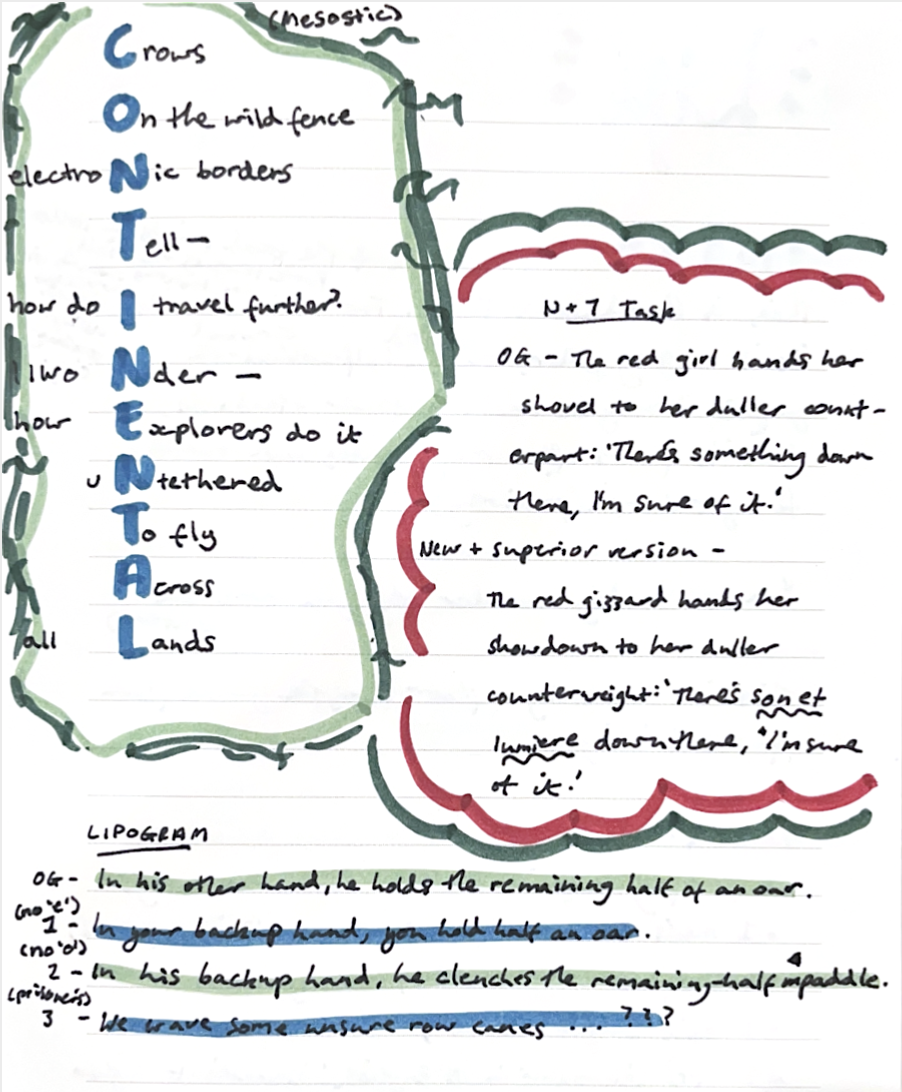 (Mesostic)
Crows
On the wild fence
electroNic borders
Tell —
how do I travel further?
I wo Nder —
how Explorers do it
u Ntethered
To fly
Across
all Lands
N+7 Task
OG - The red girl hands her
shovel to her duller count-
erpart: 'There's something down
there, I'm sure of it.'
New + superior version -
The red gizzard hands her
showdown to her duller
counterweight: 'There's son et
lumiere down there, 'I'm sure
of it.'
LIPOGRAM
OG - In his other hand, he holds the remaining half of an oar.
(no 'e')
1 - In your backup hand, you hold half an oar.
(no 'o')
2 - In his backup hand, he clenches the remaining-half paddle.
(prisoner's)
3 - We wave some unsure row canes ... ???